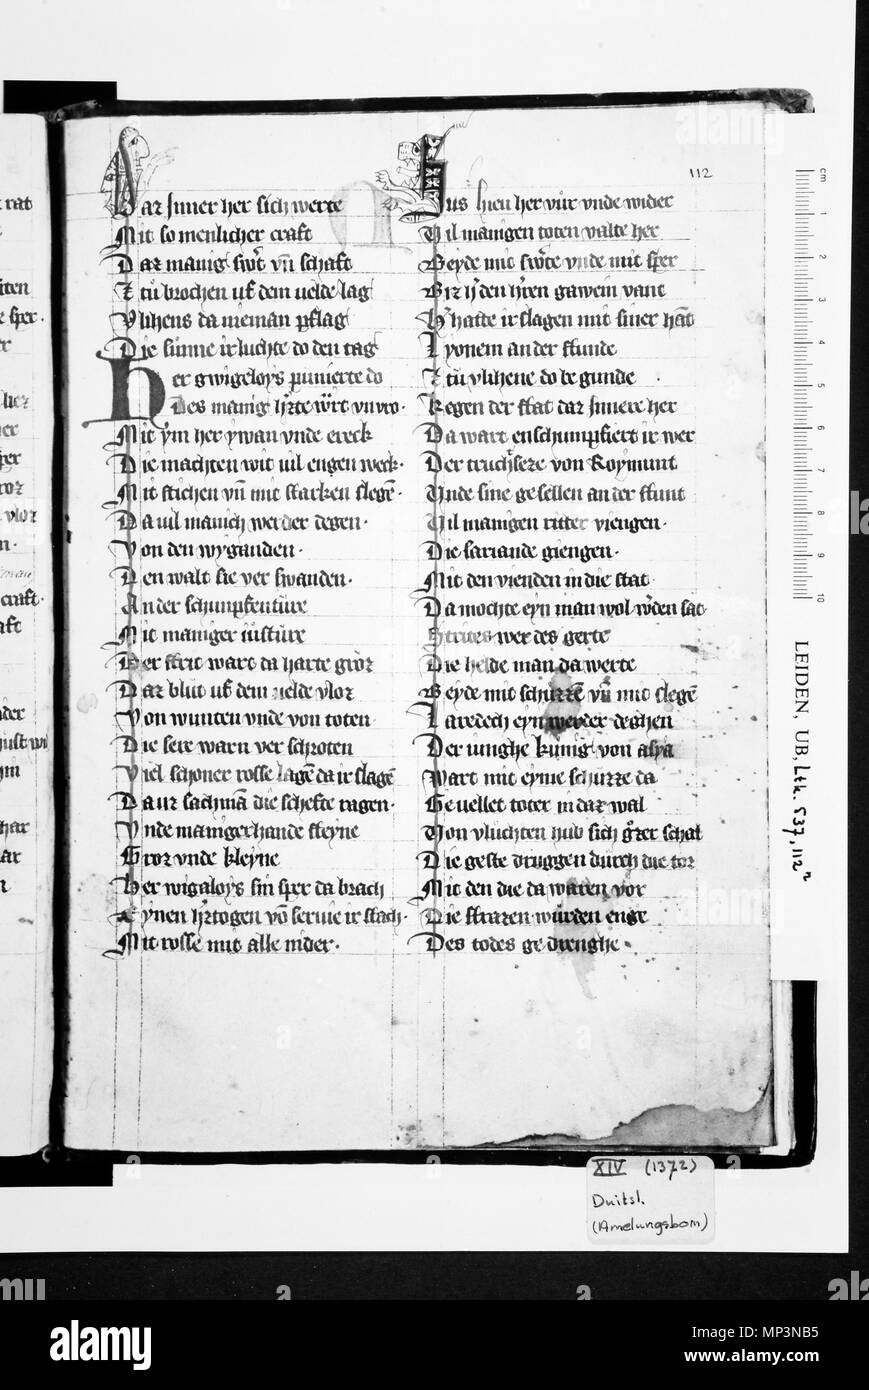 112
Dar inner her sich werte
Mit so menlicher craft
Dar manig swͤt vn̄ schaft
Ztů brochen uf dem uelde lag
Vlihens da nieman pflag
Die sunne irluchte do den tag
Her gwigeloys punierte do
Des manig hͤrte wͤrt vnvro·
Mit ẏm her ẏwan vnde ereck
Die machten wit uil engen weck·
Mit stichen vn̄ mit starken slegē·
Da uil manich werder degen·
Von den wyganden·
Den walt sie ver swanden·
An der schumpfenture
Mit maniger iusture
Der strit wart da harte groz
Daz blut uf dem uelde vloz
Von wunten vnde von toten
Die sere warn ver schroten
Viel schoner rosse lagē da ir slagē
Da uz sach mā die schefte ragen·
Vnde manigerhande steyne
Groz vnde kleyne
Her wigaloys sin sper da brach
Eynen hͤrtogen vō seruie ir stach·
Mit rosse mit alle nider·
Sus hieu her vur vnde wider
Vil manigen toten valte her
Beyde mit swͤte vnde mit sper
Biz ẏ den hͤren gawein vant
Hͤ hatte ir slagen mit siner hāt
Lyonem an der stunde
Ztů vlihene do be gunde
Kegen der stat daz innere her
Da wart enschumpfiert ir wer
Der truchseze von Roymunt
Vnde sine gesellen an der stunt
Vil manigen ritter viengen·
Die sariande giengen·
Mit den vienden in die stat
Da mochte eyn man wol wͤden sat
Strites wer des gerte
Die helde man da werte
Beyde mit schuzzē vn̄ mit slegē
Laredech eyn werder deghen
Der iunghe kunig von asya
Wart mit eyme schuzze da
Geuellet toter in daz wal
Von vluchten hub sich gͦzer schal
Die geste druggen durch die tor
Mit den die da waren vor
Die strazen wurden enge
Des todes ge drenghe·
LEIDEN, UB, Ltk. 537, 112r
cm
1
2
3
4
5
6
7
8
9
10
XIV (1372)
Duitsl.
(Amelungsborn)
alamy
Image ID: MP3NB5
www.alamy.com